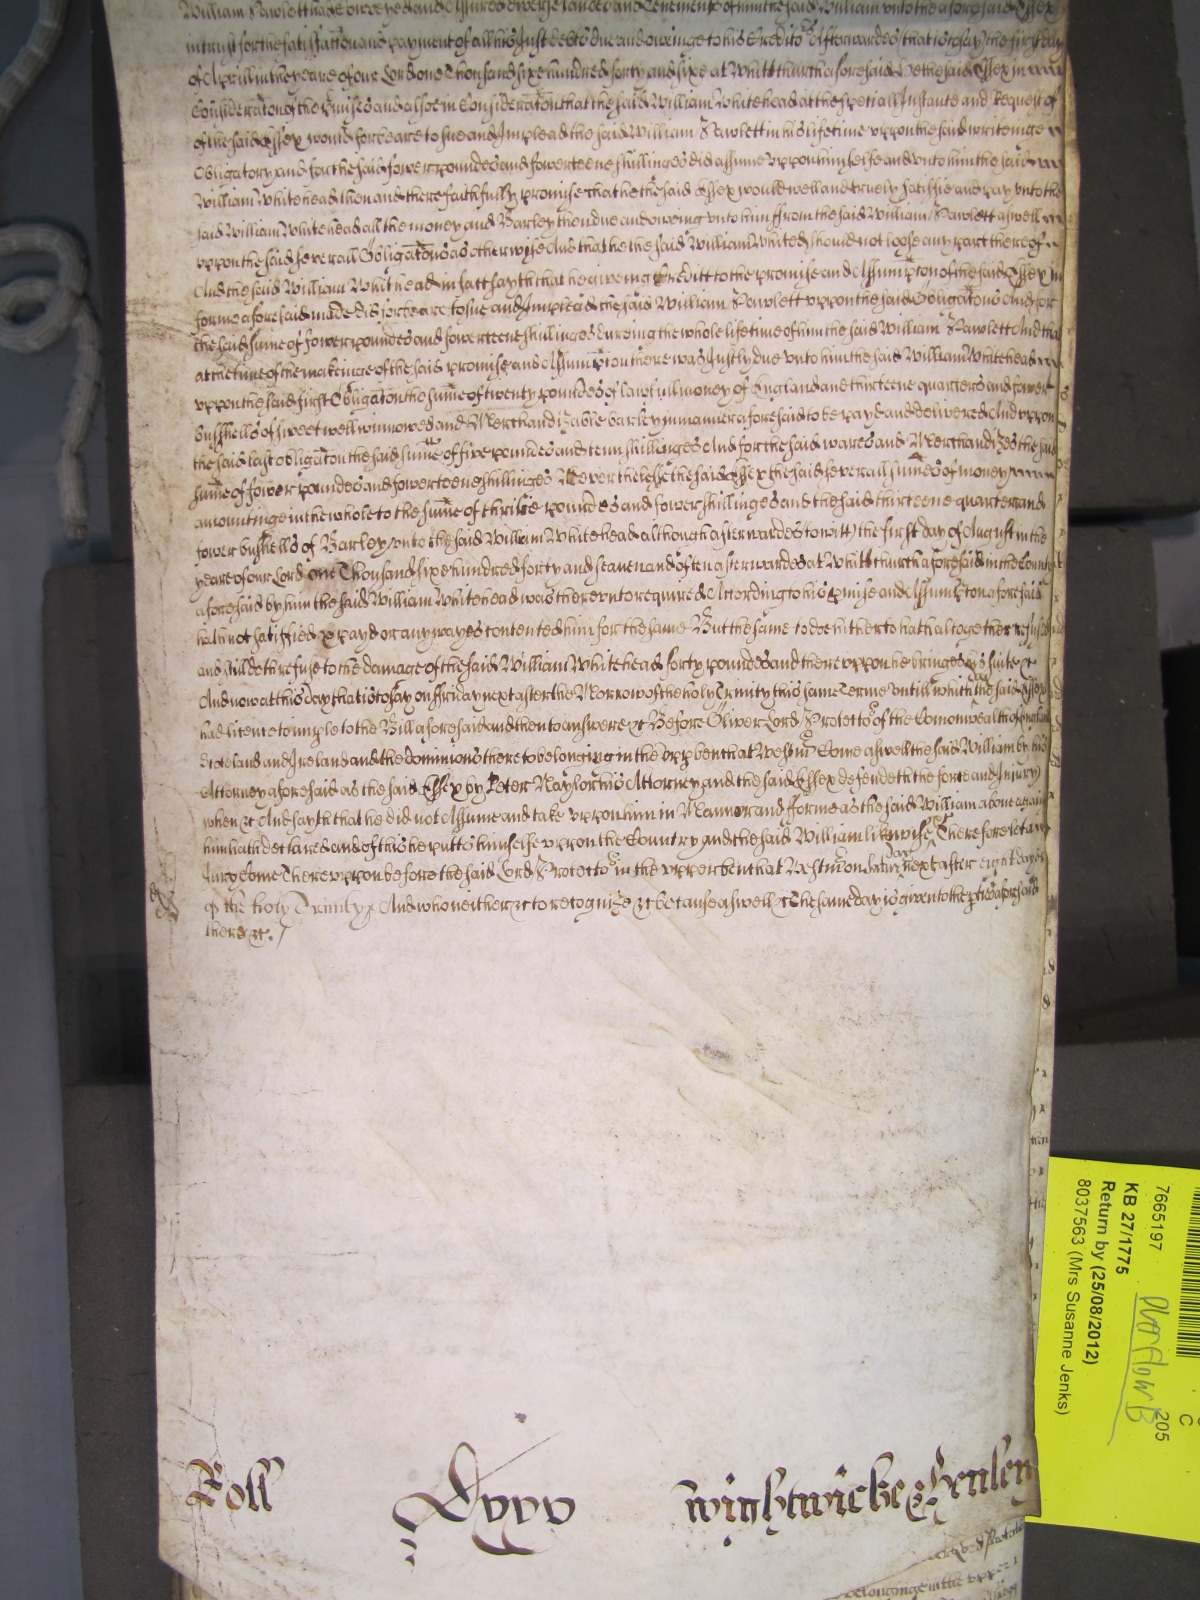 William Pawlett had conveyed and Assured diverse landes and Tenements of him the said William unto the aforesaid Essex
in trust for the satisfaction and payment of all his Just debts due and oweinge to his Creditors Afterwardes (that is to say) the first day
of Aprill in the yeare of our Lord one Thousand six hundred forty and sixe at Whitchurch aforesaid He the said Essex in
Consideracon of the pmises and alsoe in Consideracon that the said William Whitehead at the spetiall Instance and Request of
of the said Essex would forbeare to sue and Implead the said William Pawlett in his lifetime uppon the said writeinge
Obligatory and for the said fower poundes and fowerteene shillinges did assume uppon himselfe and unto him the said
William Whitehead then and there faithfully promise that he the said Essex would well and truely satisfie and pay unto the
said William Whitehead all the money and Barley then due and oweing unto him from the said William Pawlett aswell
uppon the said severall Obligacons as otherwise And that he the said William Whitehead should not loose any part thereof
And the said William Whithead in fact sayth that he giveing Creditt to the promise and Assumpcon of the said Essex in
forme aforesaid made did forbeare to sue and Implead the said William Pawlett uppon the said Obligacons And for
the said sume of fower poundes and fowerteene shillinges dureing the whole life time of him the said William Pawlett And that
at the time of the makeinge of the said promise and Assumpcion there was Justly due unto him the said William Whitehead
uppon the said first Obligacon the sume of twenty poundes of lawfull money of England and thirteene quarters and fower
busshells of sweet well winnowed and Merchandizable barley in manner aforesaid to be payd and delivered And uppon
the said last obligacon the said sume of five poundes and tenn shillinges And for the said wares and Merchandizes the said
sume of fower poundes and fowerteene shillinges Neverthelesse the said Essex the said severall sumes of money
amountinge in the whole to the sume of thirtie poundes and fower shillinges and the said thirteene quarters and
fower bushells of Barley unto the said William Whitehead although afterwardes (to witt) the first day of August in the
yeare of our Lord one Thousand six hundred forty and seaven and often afterwardes at Whitchurch aforesaid in the County
aforesaid by him the said William Whitehead was thereunto required According to his pmise and Assumpcon aforesaid
hath not satisfied or payd or any wayes contented him for the same But the same to doe hitherto hath altogether refused
and still doth refuse to the damage of the said William Whitehead forty poundes and thereuppon he bringes his suite &c
And now at this day that is to say on ffriday next after the Morrow of the holy Trinity this same Terme untill which day the said Essex
had licence to imple to the Bill aforesaid and then to answere &c Before Oliver Lord Protector of the Comonwealth of England
Scotland and Ireland and the dominions thereto belonging in the upp bench at Westm Come aswell the said William by his
Attorney aforesaid as the said Essex by Peter Naylor his Attorney and the said Essex defendeth the force and Injury
when &c And sayth that he did not Assume and take uppon him in Manner and fforme as the said William above against
him hath declared and of this he putts himselfe uppon the Country and the said William likewise &c Therefore let a
Jury Come Thereuppon before the said Lord Protector in the upper bench at Westm on day next after eight dayes
of the holy Trinity &c And who neither &c to recognize &c because aswell &c The same day is given to the pties aforesaid
there &c.
Roll
Dxxv
Wightwicke & Henley
7665197
KB 27/1775
Return by (25/08/2012)
8037563 (Mrs Susanne Jenks)
Overflow B
205
C
belonginge in the upper